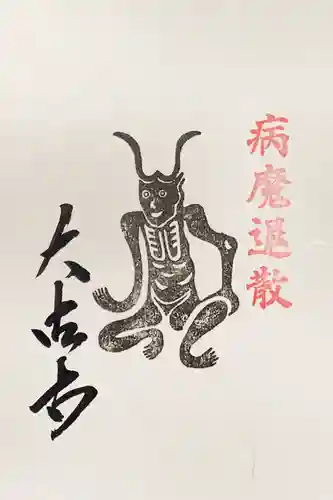 病魔退散
大古寺